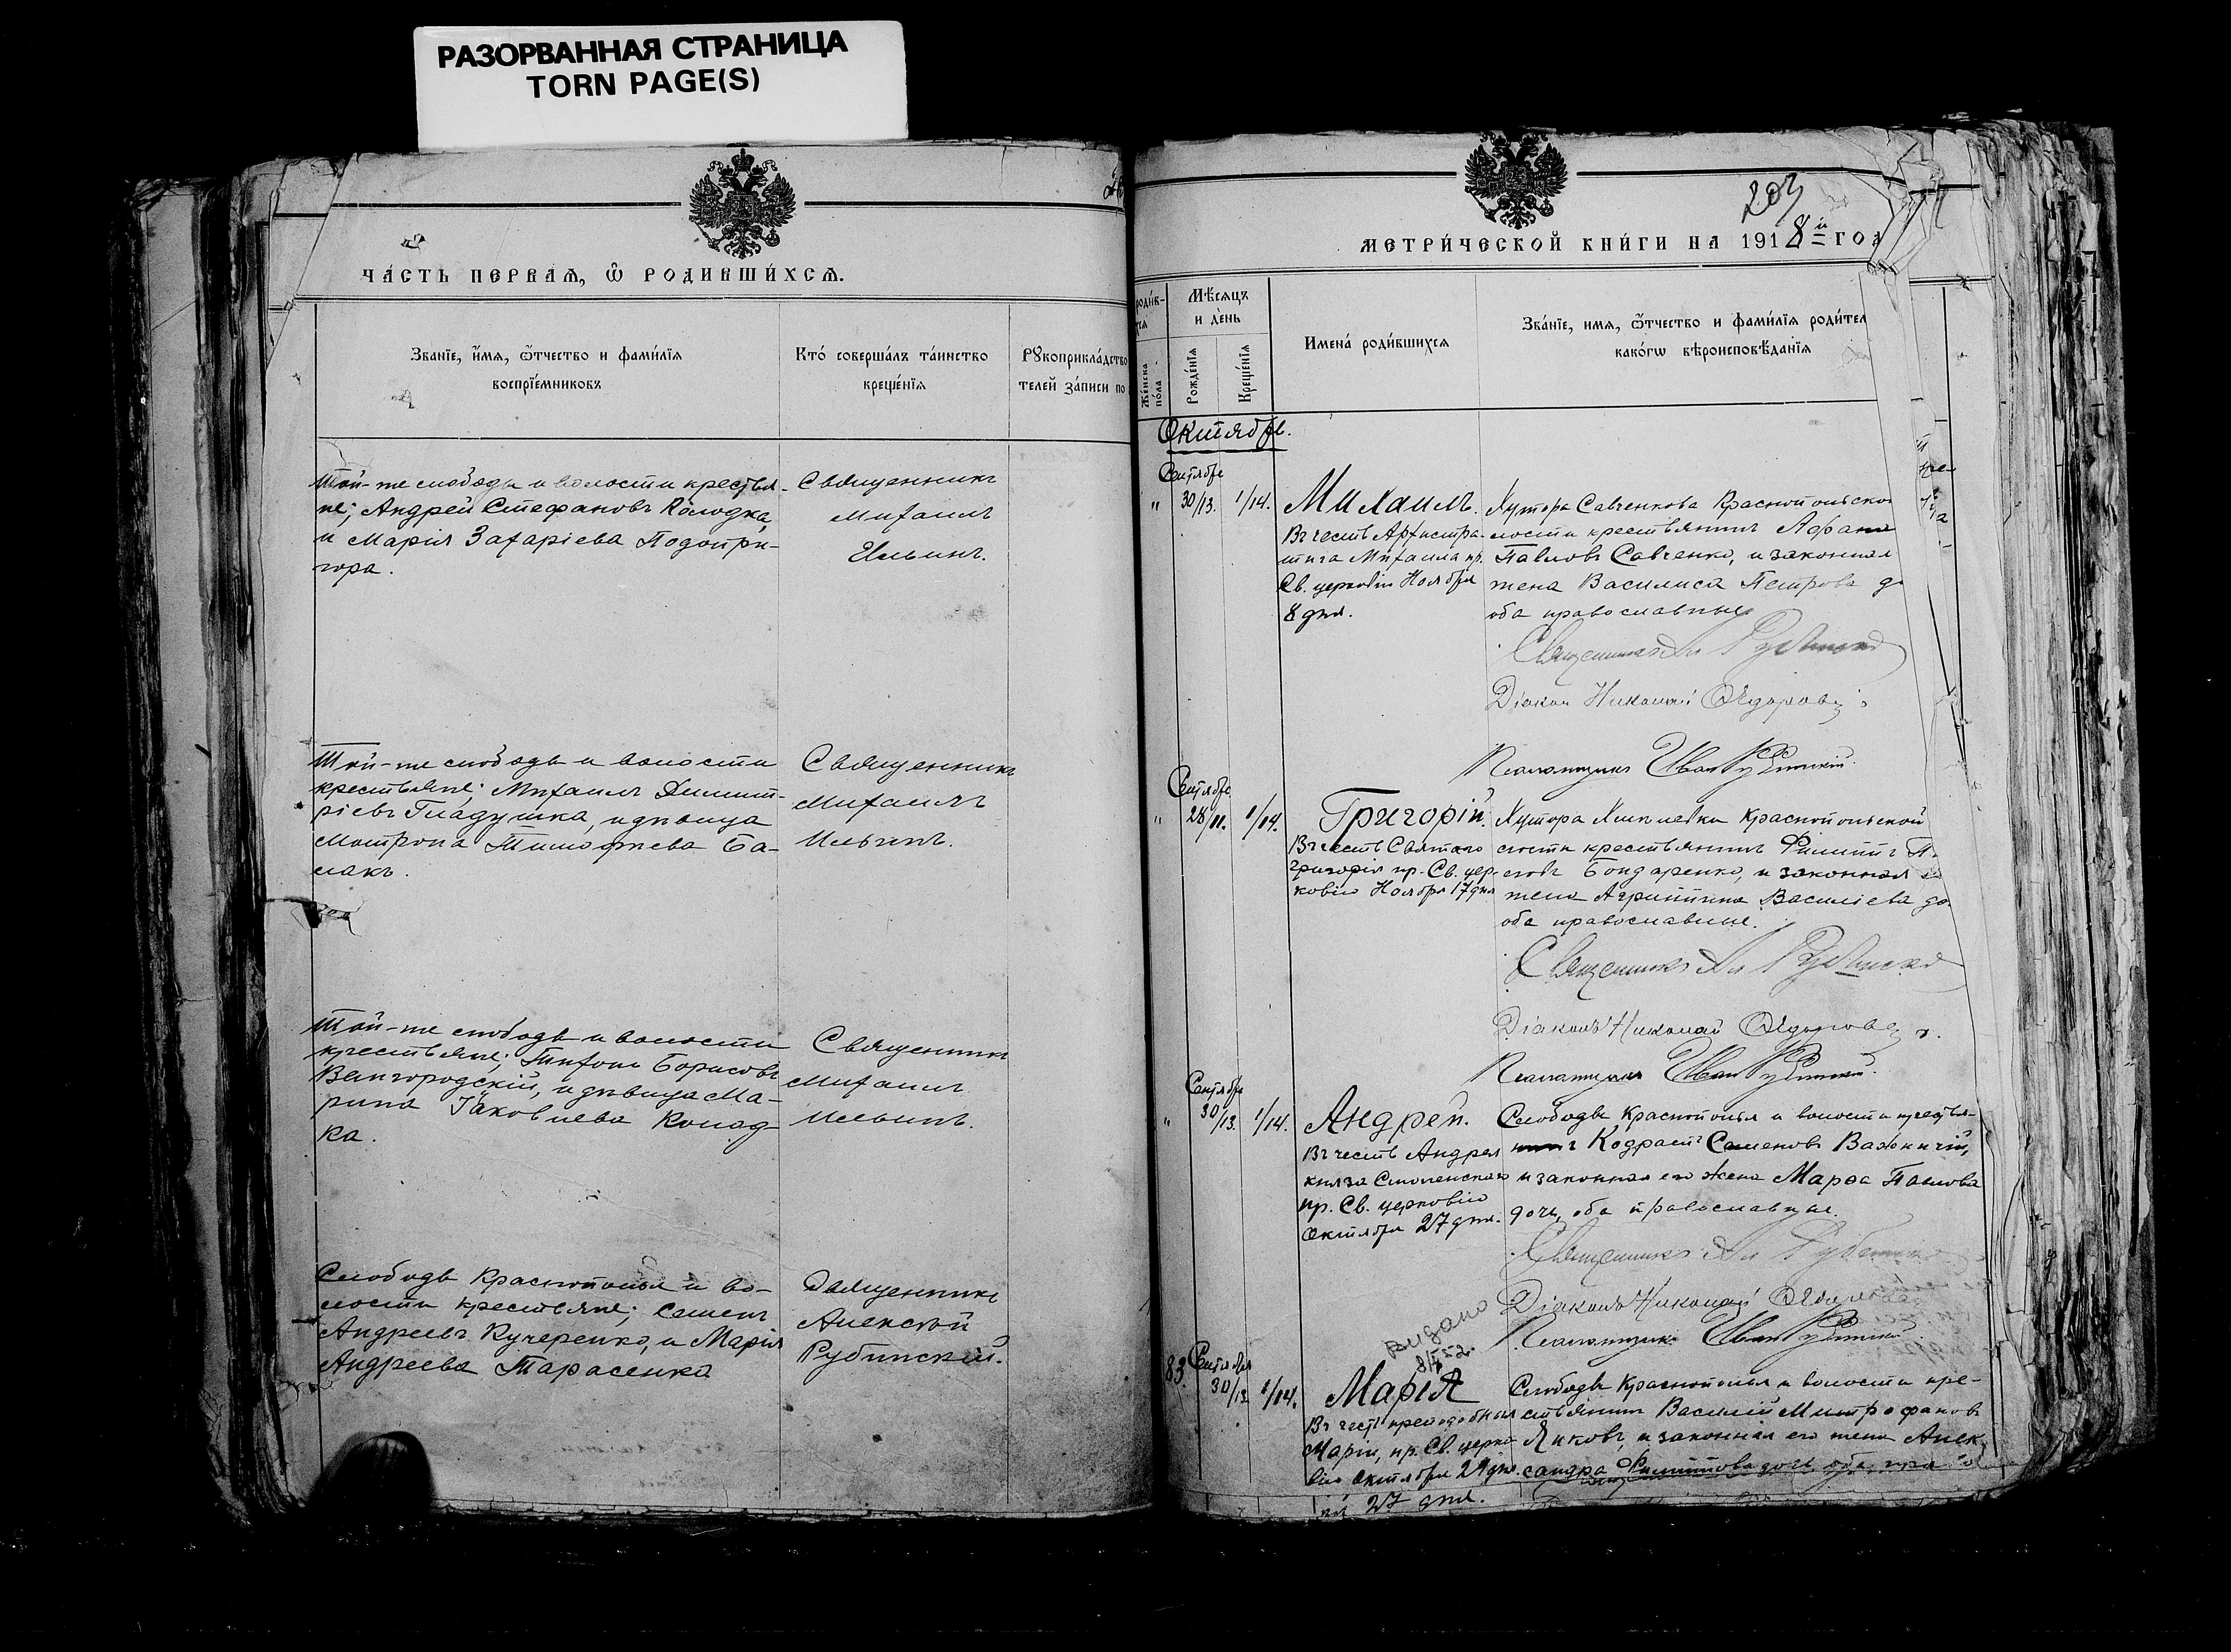 РАЗОРВАННАЯ СТРАНИЦА
TORN PAGE(S)
ЧА́СТЬ ПЕРВАѦ, Ѡ҆ РОДИВШИ́ХСѦ.
Зва́нїе, и҆́мѧ, ѻ҆́тчество и фами́лїѧ
воспрїе́мниковъ
Кто̀ соверша́лъ та́инство
креще́нїѧ
Рꙋкоприкла́дство
телей за́писи по
Той-же слободы и волости крестья-
не; Андрей Стефановъ Колодка,
и Марія Захаріева Подопри-
гора.
Священникъ
Михаилъ
Ильинъ.
Той-же слободы и волости
крестьяне; Михаилъ Димит-
ріевъ Гладушка, и дѣвица
Матрона Тимофеева Ба-
лакъ.
Священникъ
Михаилъ
Ильинъ.
Той-же слободы и волости
крестьяне; Тихонъ Борисовъ
Вингородскій, и дѣвица Ма-
рина Іаковлева Колод-
ка.
Священникъ
Михаилъ
Ильинъ.
Слободы Краснополья и во-
лости крестьяне; Семенъ
Андреевъ Кучеренко, и Марія
Андреева Тарасенко
Священникъ
Алексѣй
Рубинскій.
203
МЕТРИ́ЧЕСКОЙ КНИ́ГИ НА 1918й ГОД
роди́в-
Мѣ́сѧцъ
и де́нь
Же́нска
по́ла
Рожде́нїѧ
Креще́нїѧ
Имена̀ роди́вшихсѧ
Зва́нїе, имѧ, ѻ҆́тчество и фами́лїѧ роди́тел
како́гѡ вѣроисповѣ́данїѧ
Октябрь.
Сентября
" 30/13. 1/14.
Михаилъ.
Въ честь Архистра-
тига Михаила пр.
Св. церковію Ноября
8 дня.
Хутора Савченкова Краснопольской
лости крестьянинъ Афана
Павловъ Савченко, и законная
жена Василиса Петрова д
оба православные
Священникъ Ал Рубинскій
Діаконъ Николай Ѳедоровъ
Псаломщикъ Иван Рубинскій.
Сентября
" 28/11. 1/14.
Григорій.
Въ честь Святаго
Григорія пр. Св. цер-
ковію Ноября 17 дня
Хутора Хмелевки Краснопольской
лости крестьянинъ Филиппъ П
ловъ Бондаренко, и законная
жена Агриппина Василіева до
оба православные.
Священникъ Ал Рубинскій
Діаконъ Николай Ѳедоровъ
Псаломщикъ Иван Рубинскій.
Сентября
" 30/13. 1/14.
Андрей.
Въ честь Андрея
князя Смоленскаго
пр. Св. церковію
Октября 27 дня.
Слободы Краснополья и волости крестья-
нинъ Кодратъ Семеновъ Важничій,
и законная его жена Марѳа Павлова
дочь, оба православные.
Священникъ Ал Рубинскій
Діаконъ Николай Ѳедоровъ
Псаломщикъ Иван Рубинскій.
Видано
Сентября
83. 30/13 1/14.
Марія
Въ честь преподобныя
Маріи, пр. Св. церко
вію Октября 29 дня.
27 дня.
Слободы Краснополья и волости кре-
стьянинъ Василій Митрофановъ
Яковъ, и законная его жена Алек
сандра Филиппова дочь оба пра